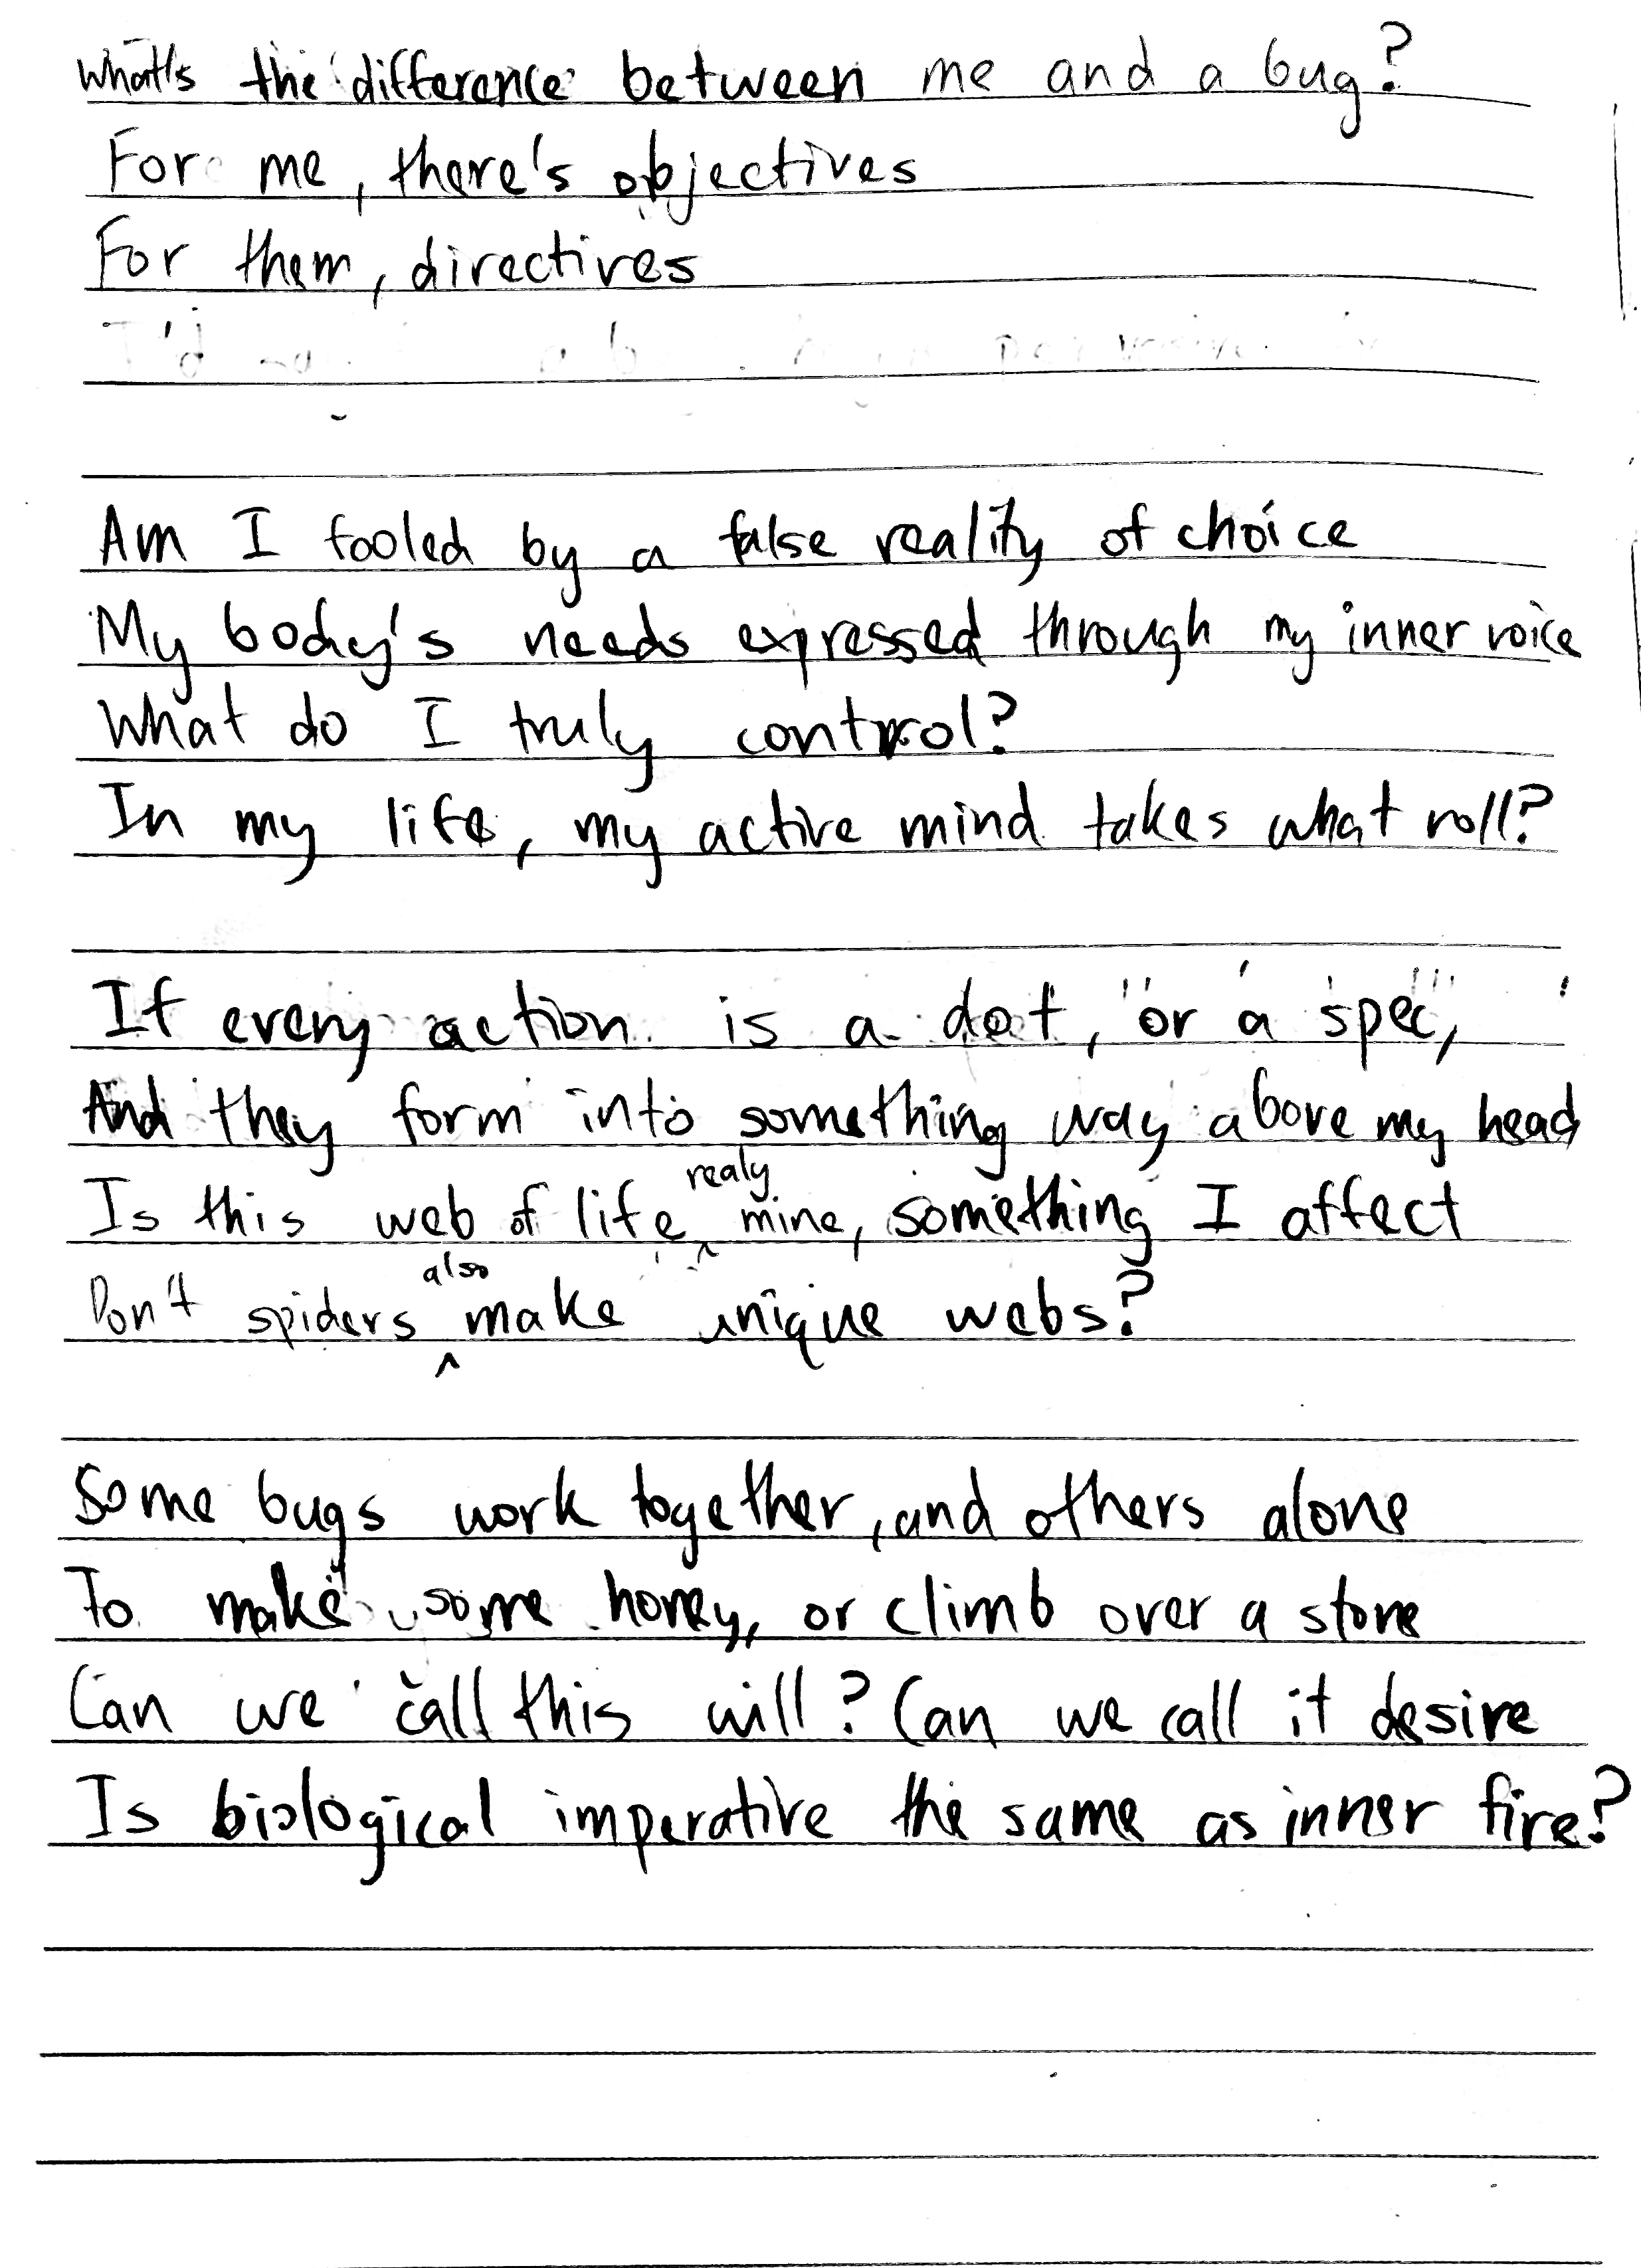 What's the difference between me and a bug?
For me, there's objectives
For them, directives
I'd
Am I fooled by a false reality of choice
My body's needs expressed through my inner voice
What do I truly control?
In my life, my active mind takes what roll?
If every action is a dot, or a spec,
And they form into something way above my head
Is this web of life realy mine, something I affect
Don't spiders also make unique webs?
Some bugs work together, and others alone
To make some honey, or climb over a stone
Can we call this will? Can we call it desire
Is biological imperative the same as inner fire?